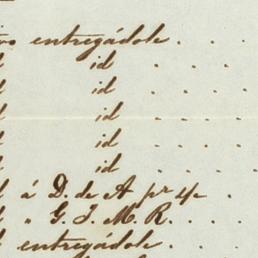 entregádole . . .
id . . . .
id . . . .
id . . . .
id . . . .
id . . . .
á D. de A pr 4e .
" G. J. M. R. . . .
entregádole . . .